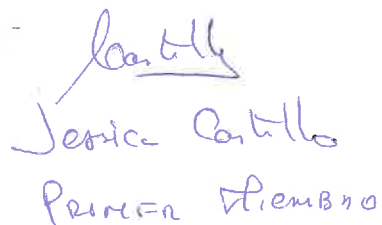 Castillo
Jessica Castillo
PRIMER MiEMBRO